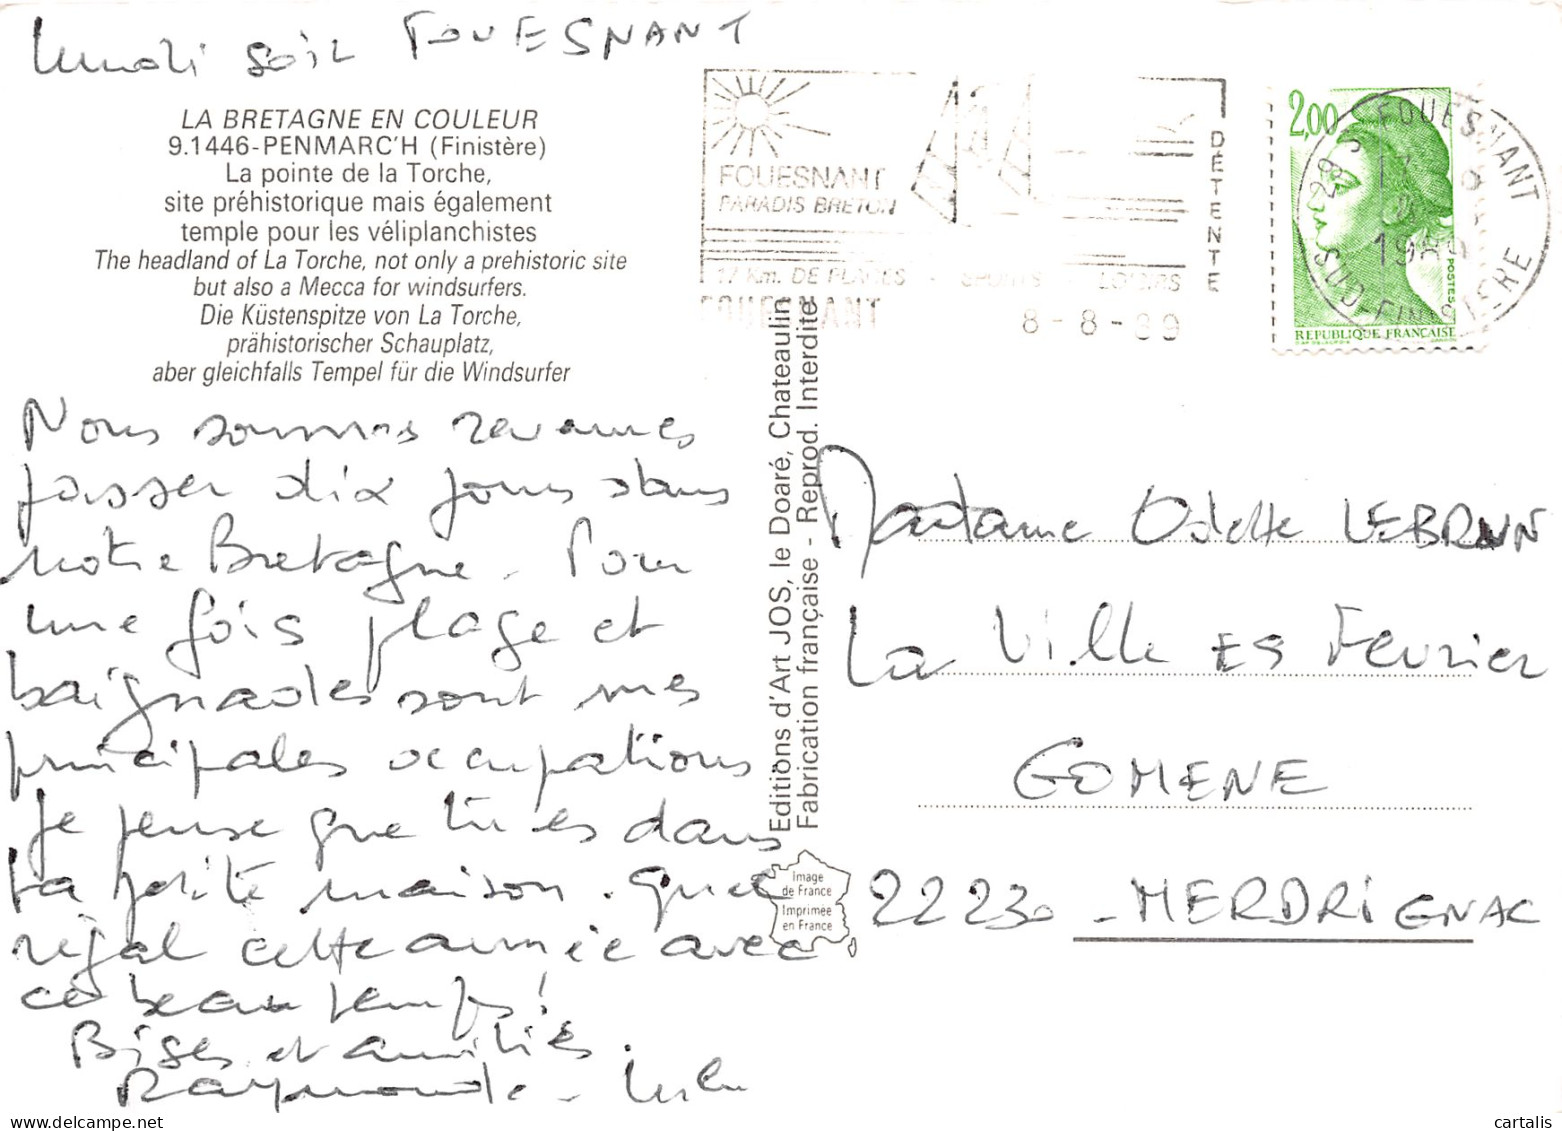 lundi soir FOUESNANT
LA BRETAGNE EN COULEUR
9.1446-PENMARC'H (Finistère)
La pointe de la Torche,
site préhistorique mais également
temple pour les véliplanchistes
The headland of La Torche, not only a prehistoric site
but also a Mecca for windsurfers.
Die Küstenspitze von La Torche,
prähistorischer Schauplatz,
aber gleichfalls Tempel für die Windsurfer
Nous sommes revenues
passer dix jours dans
notre Bretagne. Pour
une fois plage et
baignades sont mes
principales occupations.
Je pense que tu es dans
ta petite maison. Quel
régal cette année avec
ce beau temps!
Bises et amitiés.
Raymonde - Lulu
FOUESNANT
PARADIS BRETON
17 Km. DE PLAGES - SPORTS - LOISIRS
DETENTE
FOUESNANT 8-8-89
2,00
POSTES
REPUBLIQUE FRANÇAISE
FOUESNANT
29 S
17 H
8
1989
SUD-FINISTERE
Editions d'Art JOS, le Doaré, Chateaulin
Fabrication française - Reprod. Interdite
Image
de France
Imprimée
en France
Madame Odette LEBRUN
La Ville ES Fevrier
GOMENE
22230 - MERDRIGNAC
delcampe.net
cartalis